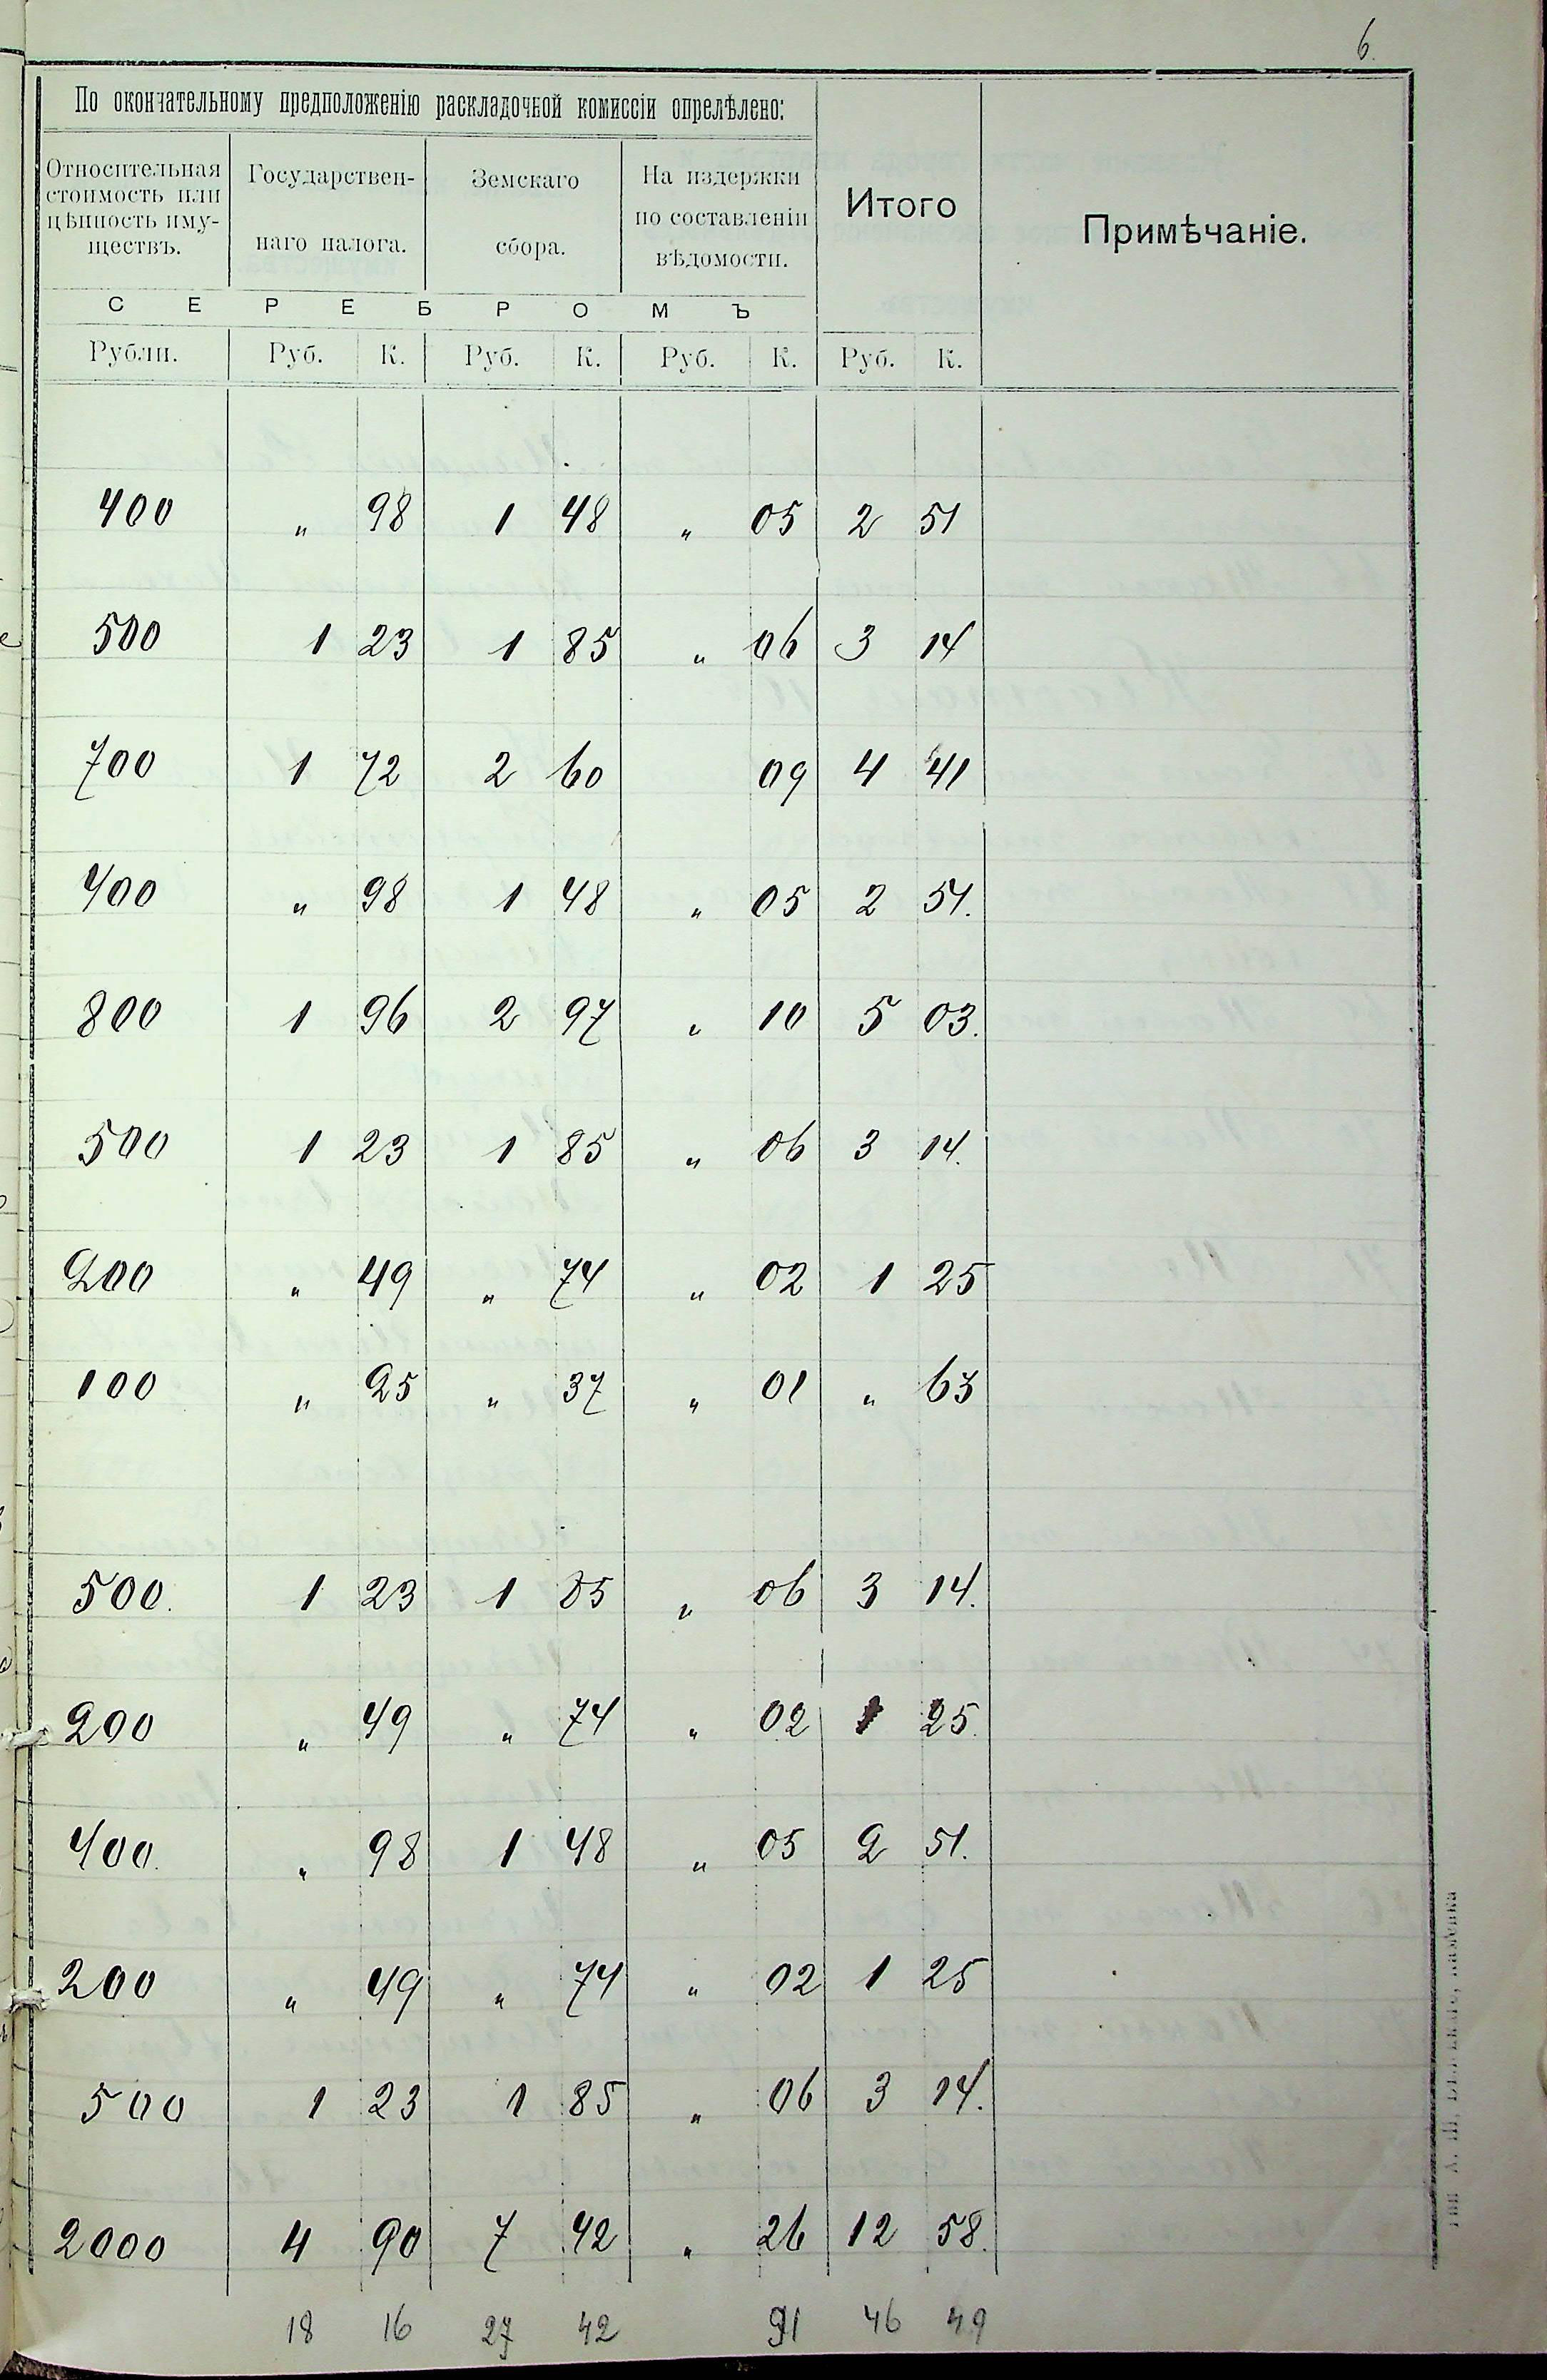 6.
По окончательному предположенію раскладочной комиссіи опрелѣлено:
Относительная стоимость или цѣнность иму-ществъ.
Государствен-наго налога.
Земскаго сбора.
На издержки по составленіи вѣдомости.
Итого
Примѣчаніе.
С Е Р Е Б Р О М Ъ
Рубли. Руб. К. Руб. К. Руб. К. Руб. К.
400 „ 98 1 48 „ 05 2 51
500 1 23 1 85 „ 06 3 14
700 1 72 2 60 09 4 41
400 „ 98 1 48 „ 05 2 51.
800 1 96 2 97 „ 10 5 03.
500 1 23 1 85 „ 06 3 14.
200 „ 49 „ 74 „ 02 1 25
100 „ 25 „ 37 „ 01 „ 63
500. 1 23 1 85 „ 06 3 14.
200 „ 49 „ 74 „ 02 1 25.
400. „ 98 1 48 „ 05 2 51.
200 „ 49 „ 74 „ 02 1 25
500 1 23 1 85 „ 06 3 14.
2000 4 90 7 42 „ 26 12 58.
18 16 27 42 91 46 49